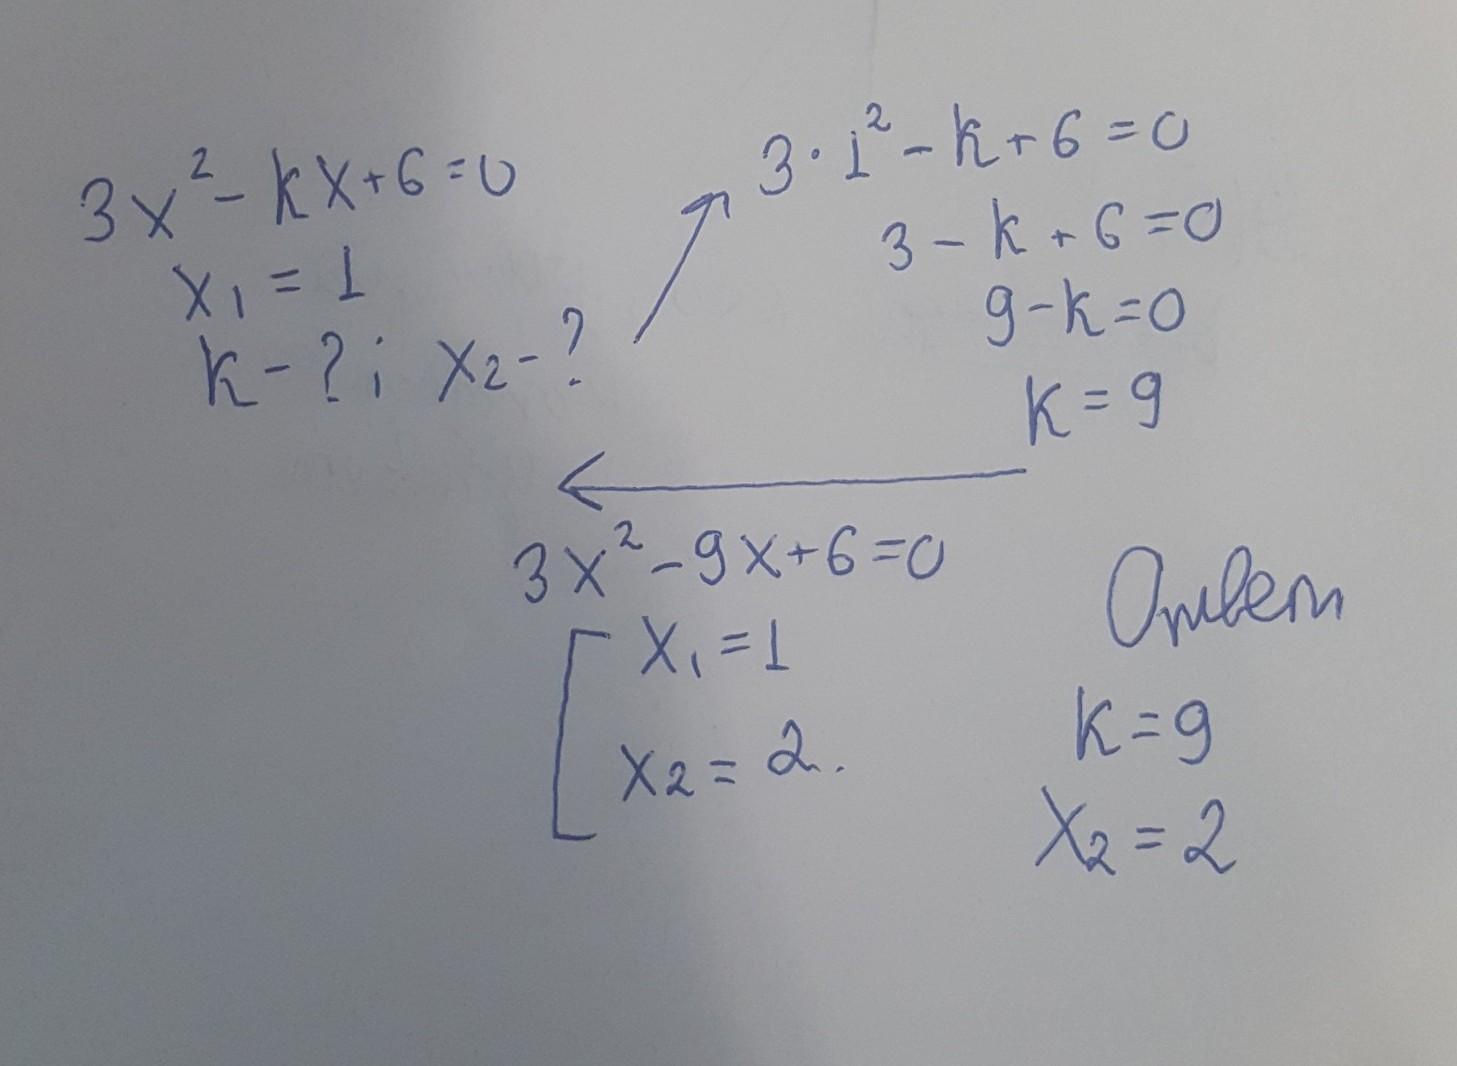 3x² - kx + 6 = 0
x₁ = 1
k - ? ; x₂ - ?
3 · 1² - k + 6 = 0
3 - k + 6 = 0
9 - k = 0
k = 9
3x² - 9x + 6 = 0
x₁ = 1
x₂ = 2.
Ответ
k = 9
x₂ = 2